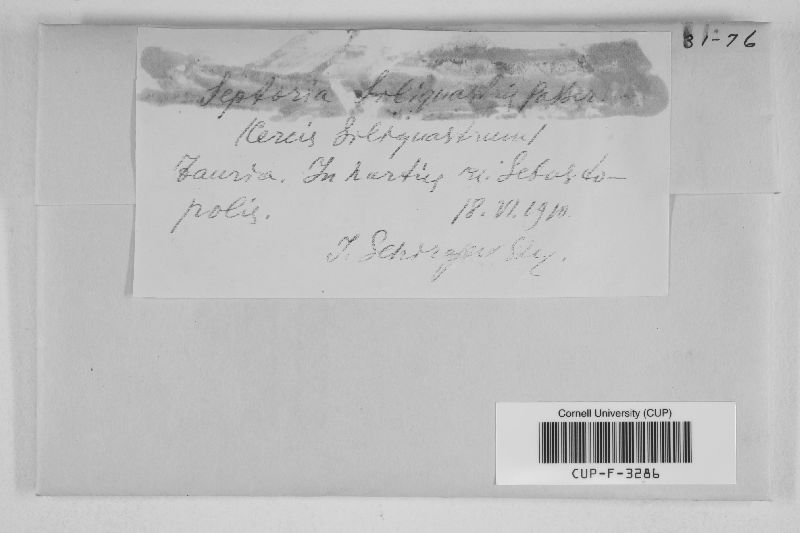 31-76
Septoria Siliquastri Passer.
Kercis Siliquastrum
Tauria. In hortis Sebasto-
polis. 18. VI. 1910.
Cornell University (CUP)
CUP-F-3286